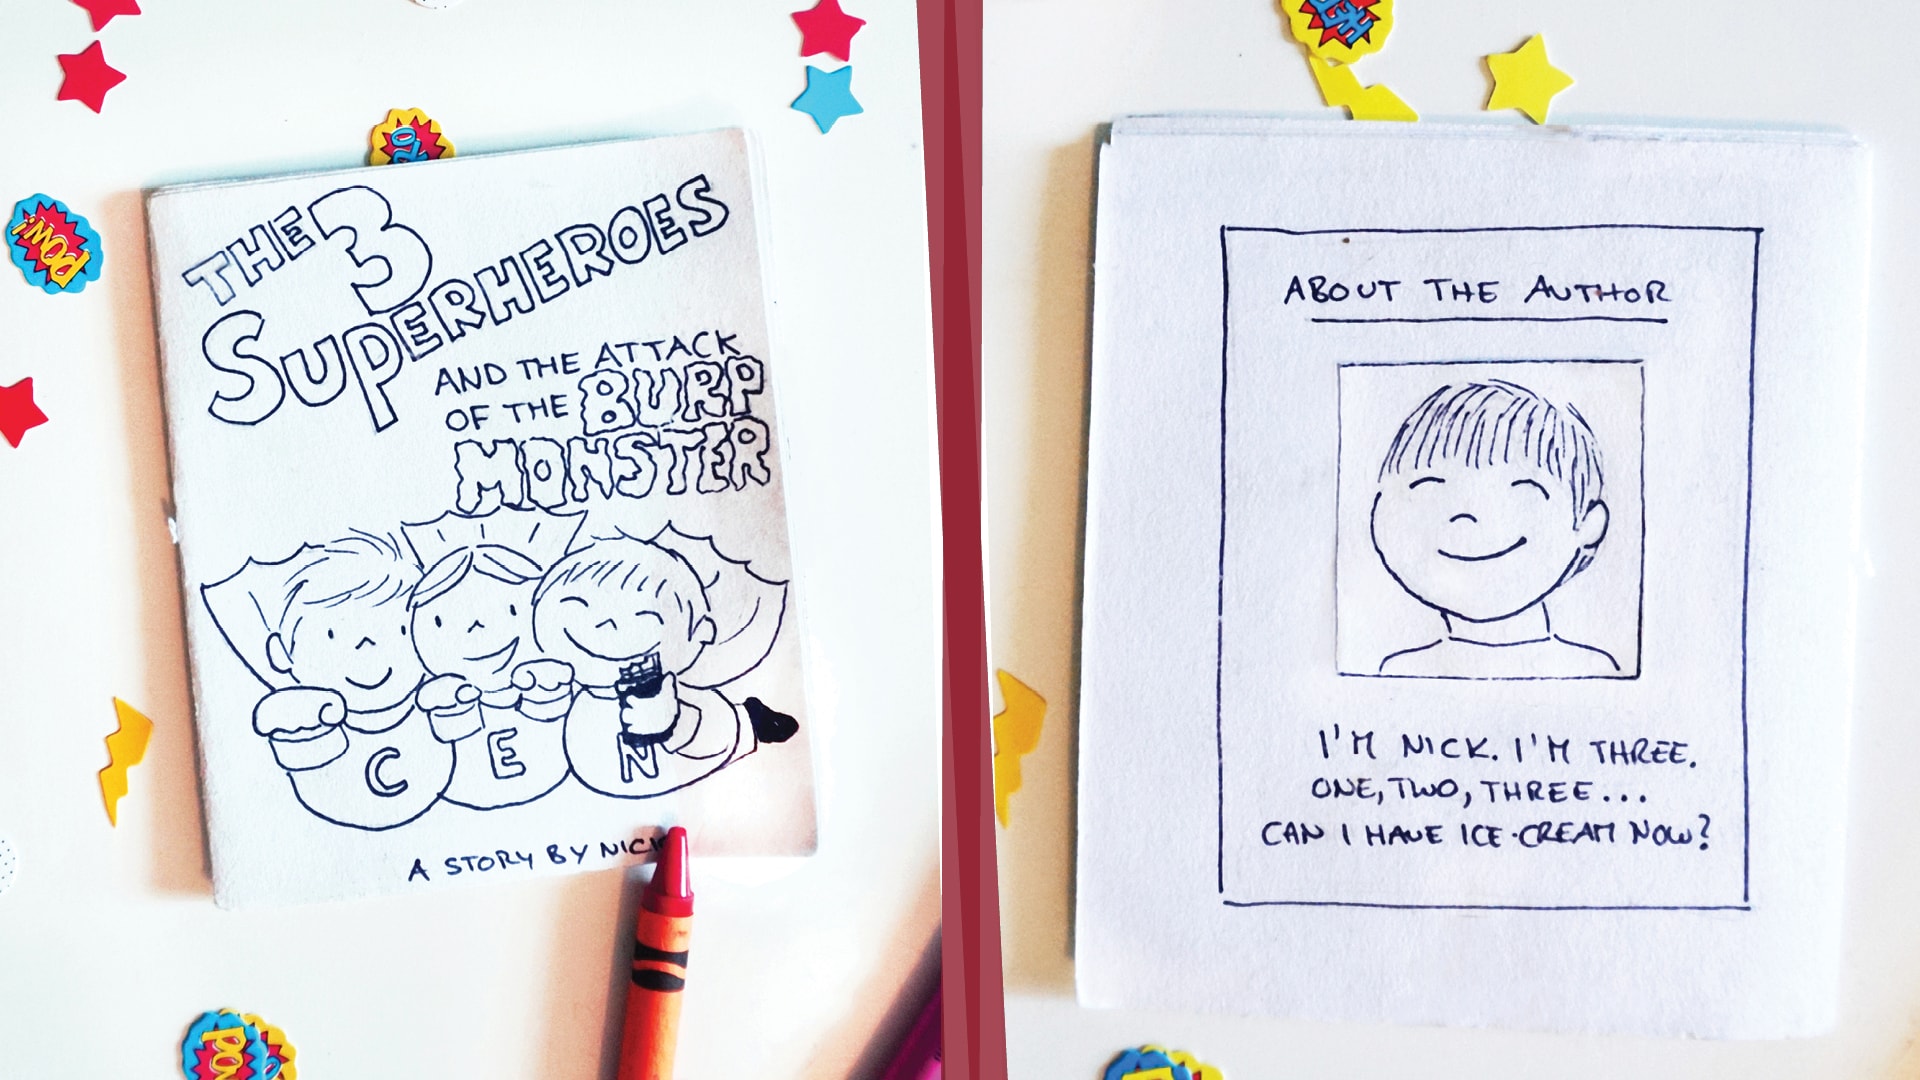 THE 3
SUPERHEROES
AND THE ATTACK
OF THE BURP
MONSTER
C E N
A STORY BY NICK
POW!
ABOUT THE AUTHOR
I'M NICK. I'M THREE.
ONE, TWO, THREE...
CAN I HAVE ICE-CREAM NOW?